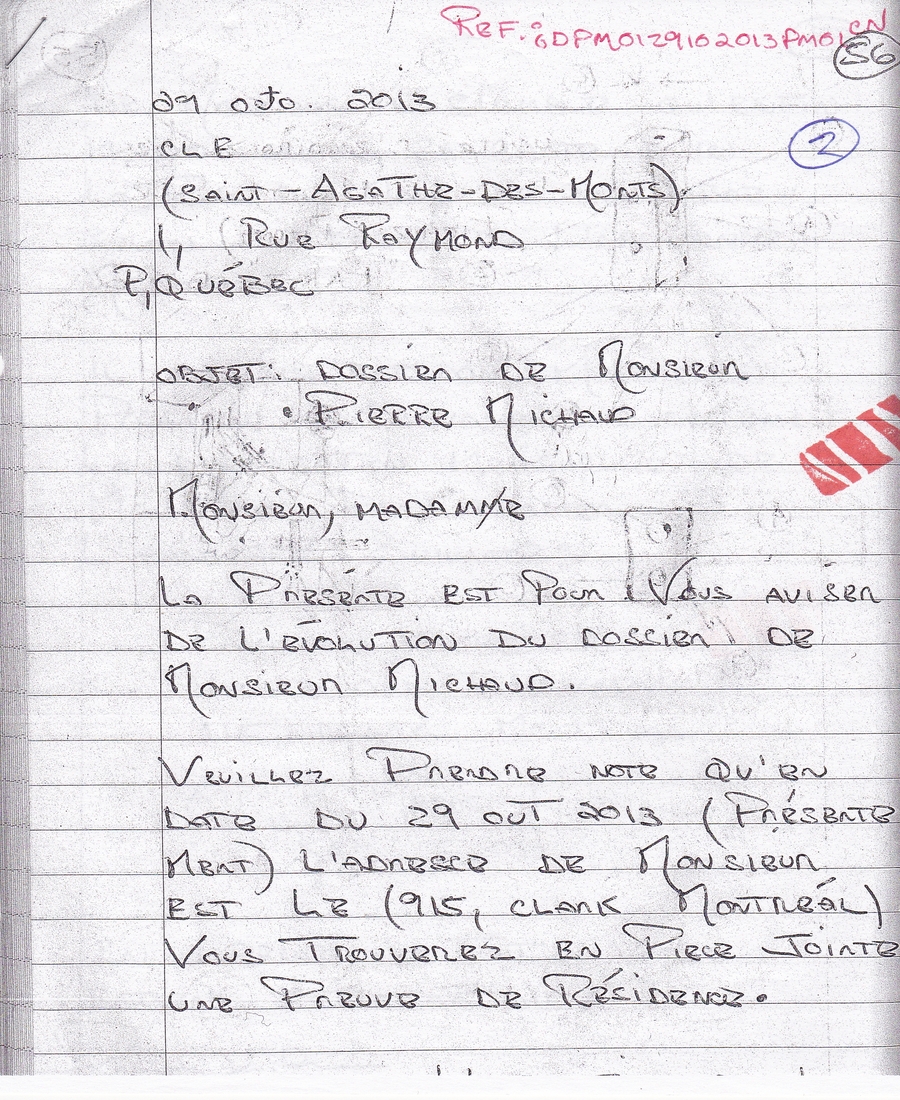 REF.: GDPM0129102013PM01EN
56
29 octo. 2013
2
CLE
(SAINT-AGATHE-DES-MONTS).
1, RUE RAYMOND
P,QUÉBEC
OBJET: DOSSIER DE MONSIEUR
• PIERRE MICHAUD
MONSIEUR, MADAMME
LA PRÉSENTE EST POUR VOUS AVISER
DE L'ÉVOLUTION DU DOSSIER DE
MONSIEUR MICHAUD.
VEUILLEZ PRENDRE NOTE QU'EN
DATE DU 29 OUT 2013 (PRÉSENTE
MENT) L'ADRESSE DE MONSIEUR
EST LE (915, CLARK MONTRÉAL)
VOUS TROUVEREZ EN PIECE JOINTE
UNE PREUVE DE RÉSIDENCE.